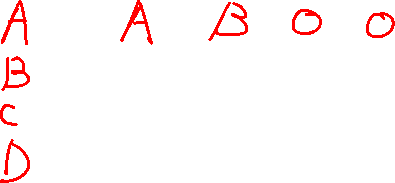 A A B O O
B
C
D